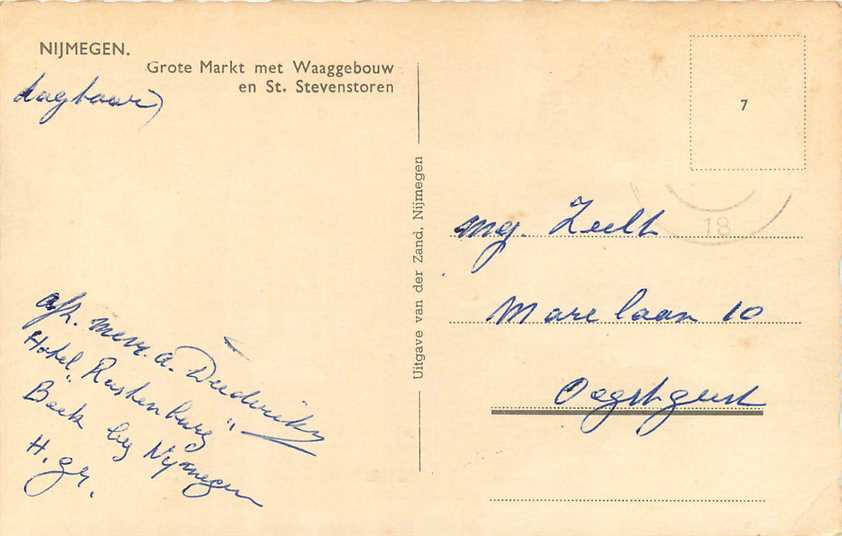 NIJMEGEN.
Grote Markt met Waaggebouw
en St. Stevenstoren
7
18
Uitgave van der Zand, Nijmegen
mej. Zeelt
Marelaan 10
Oegstgeest
afz. mevr. A. Diederiks
Hotel "Rustenburg"
Beek bij Nijmegen
H. gr.